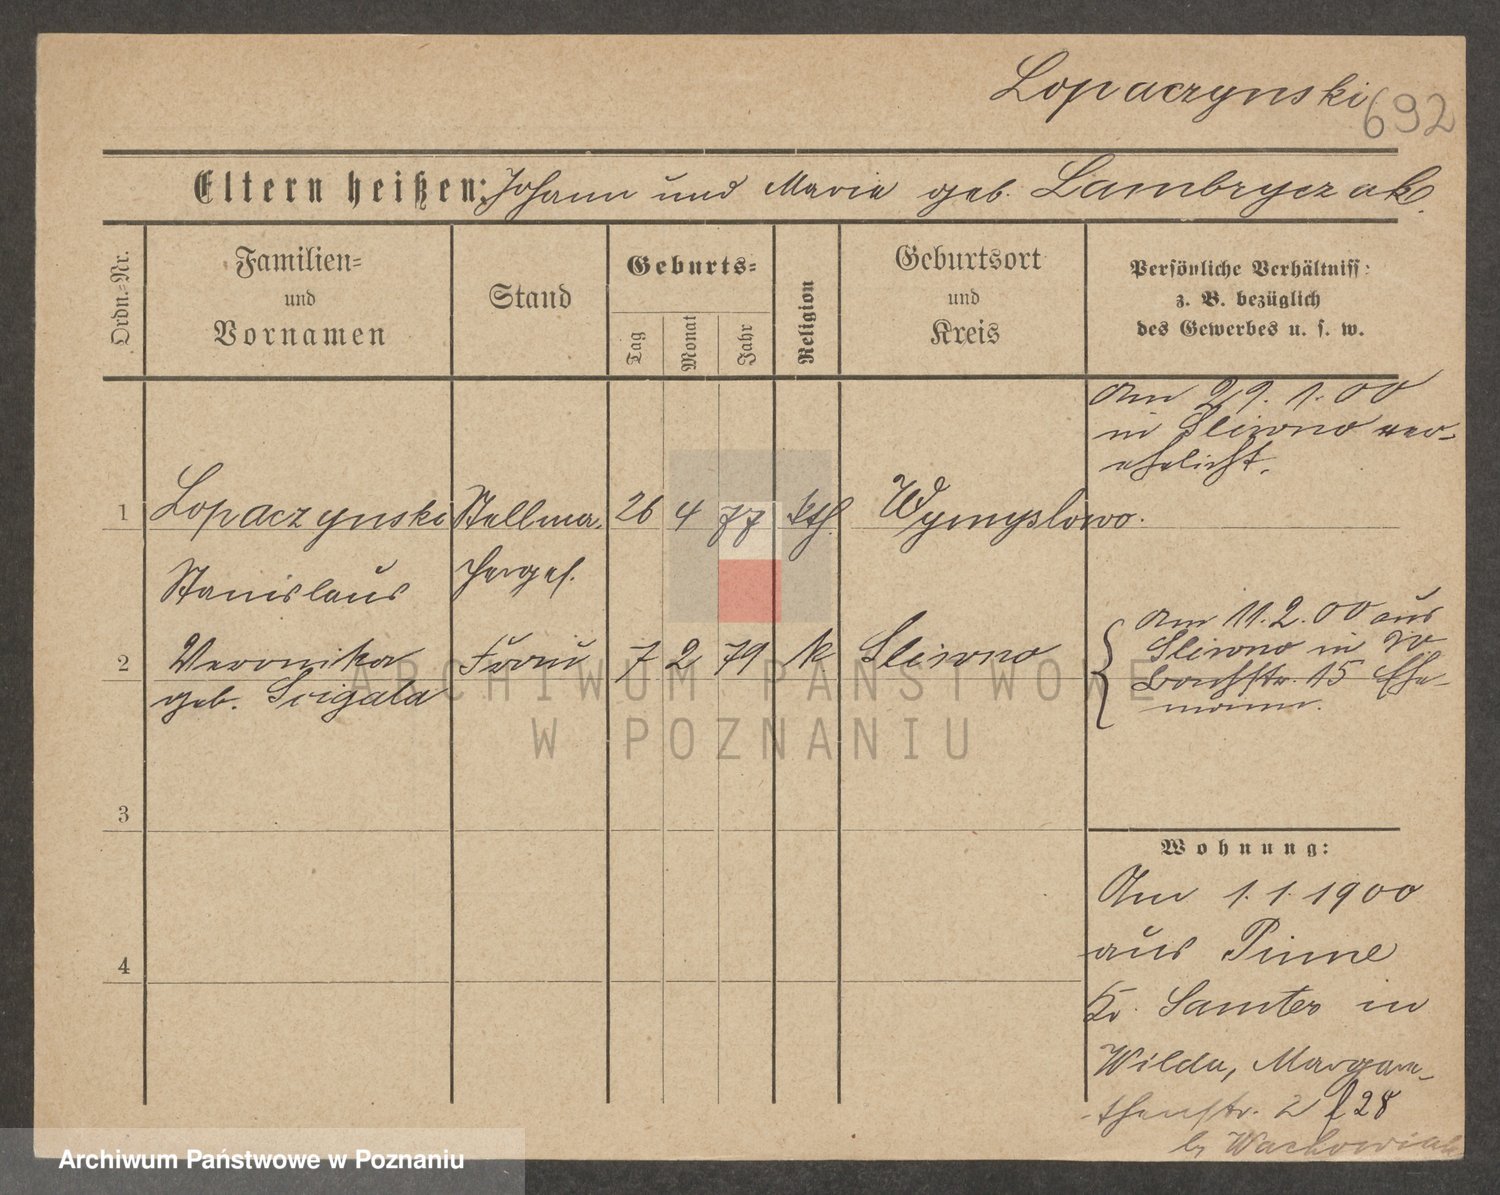 Lopaczynski
692
Eltern heißen: Johann und Maria geb. Lambryczak.
Ordn.-Nr.
Familien-
und
Vornamen
Stand
Geburts-
Tag
Monat
Jahr
Religion
Geburtsort
und
Kreis
Persönliche Verhältniss:
z. B. bezüglich
des Gewerbes u. s. w.
Am 29. 1. 00
in Sliwno ver-
ehelicht.
1 Lopaczynski Stellma. 26 4 77 kth. Wymyslowo.
Stanislaus cherges.
2 Veronika Frau 7 2 79 k Sliwno
geb. Scigala
Am 11. 2. 00 aus
Sliwno in W
Bachstr. 15 Ehe-
mann.
3
4
Wohnung:
Am 1. 1. 1900
aus Pinne
Kr. Samter in
Wilda, Margare-
thenstr. 2 f 28
b/ Wachowiak
ARCHIWUM PAŃSTWOWE
W POZNANIU
Archiwum Państwowe w Poznaniu